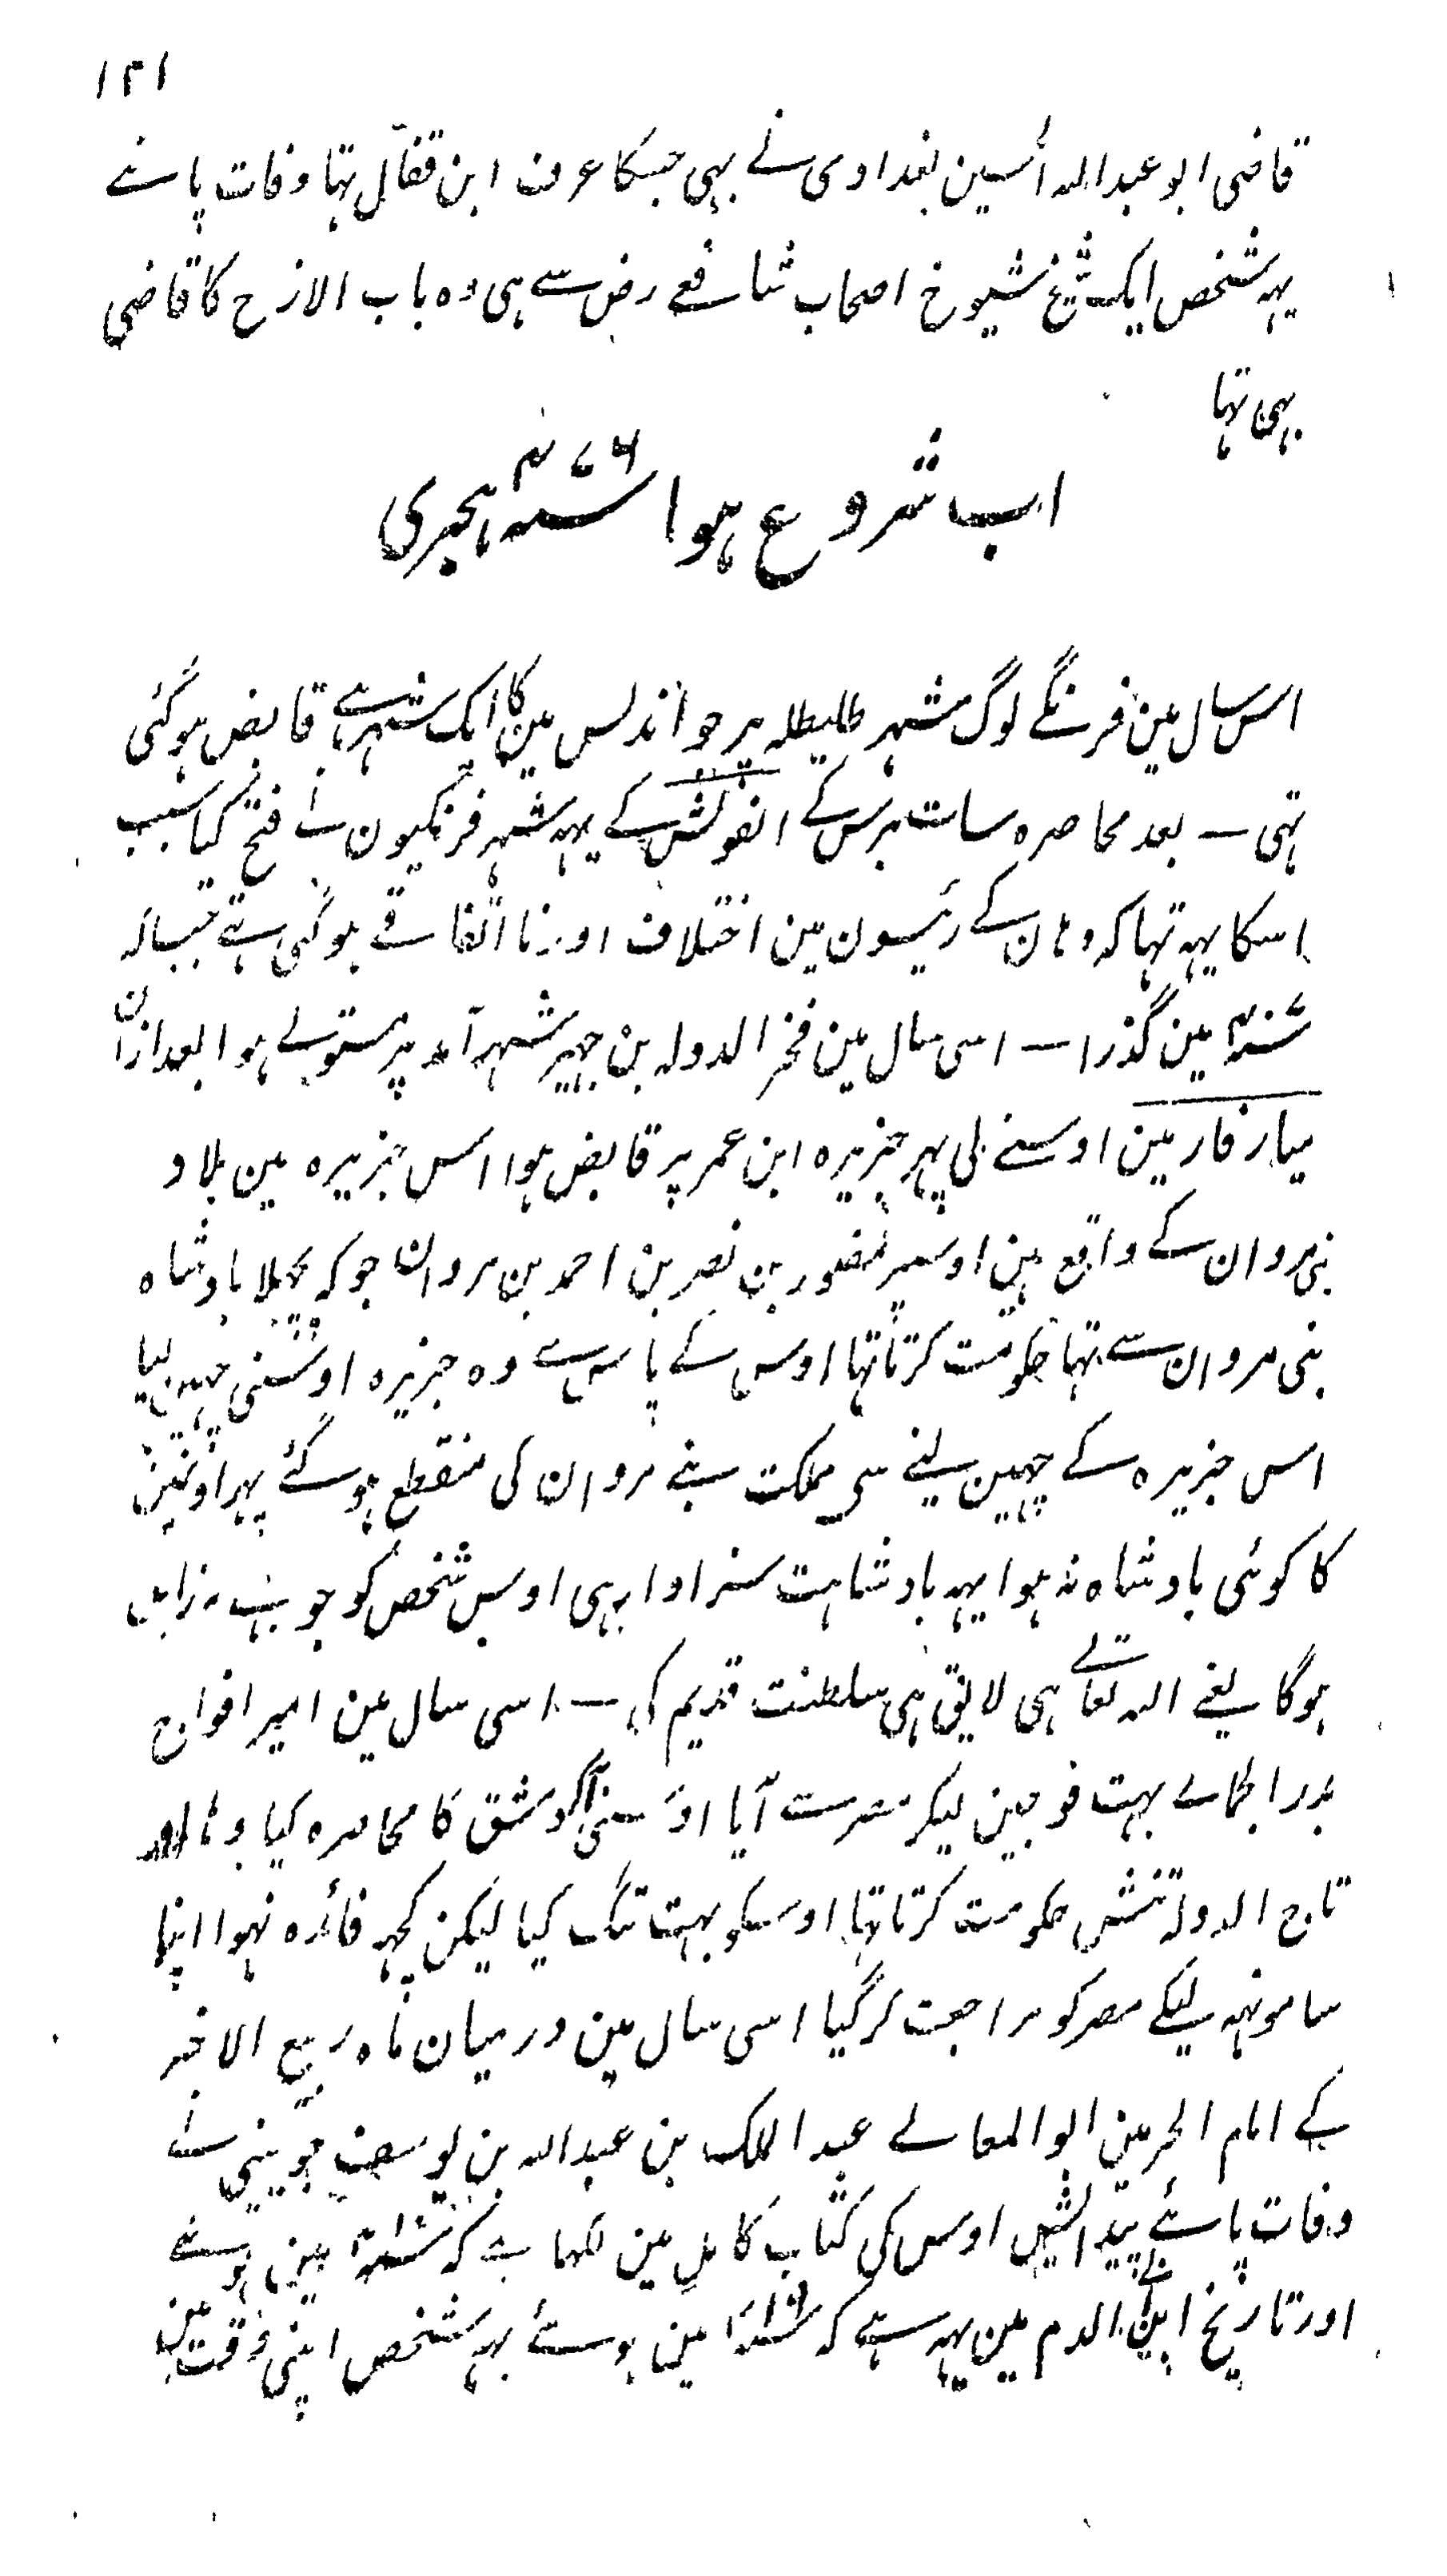 ۱۲۱
قاضی ابو عبداللہ الحسین بغدادی نے بہی جسکا عرف ابن قفال تہا وفات پائے
یہہ شخص ایک شیخ شیوخ اصحاب شافعے رض سے ہی وہ باب الازج کا قاضی
بہی تہا
اب شروع ہوا سنہ ۴۷۸ ہجری
اس سال مین فرنگے لوگ شہر طلیطلہ پر جو اندلس مین کا ایک شہر ہے قابض ہوگئی
تہی ــ بعد محاصرہ سات برس کے الفونش کے یہہ شہر فرنگیون نے فتح کیا سبب
اسکا یہہ تہا کہ وہان کے رئیسون مین اختلاف اور نا اتفاقے ہوگئی ہتے جیساکہ
مین گذرا ــ اسی سال مین فخر الدولہ بن جہیر شہر آمد پر مستولے ہوا بعد ازان
میارفارمین اوسنے لی پہر جزیرہ ابن عمر پر قابض ہوا اس جزیرہ مین بلاد
بنی مروان کے واقع ہین اوسپر منصور بن نصر بن احمد بن مروان جو کہ پچہلا بادشاہ
بنی مروان سے تہا حکومت کرتا تہا اوس کے پاس سے وہ جزیرہ اوسنی چہین لیا
اس جزیرہ کے چہین لینے سی مملکت بنے مروان کی منقطع ہوگئے پہر اونمین
کا کوئی بادشاہ نہ ہوا یہہ بادشاہت سزاوار ہی اوس شخص کو جو نہ زایل
ہوگا یعنے اللہ تعالے ہی لایق ہی سلطنت قدیم کی ــ اسی سال مین امیر افواج
بدر الجمالے بہت فوجین لیکر مصر سے آیا اوسنی آکر دمشق کا محاصرہ کیا وہان اور
تاج الدولہ تتش حکومت کرتا تہا اوسکو بہت تنگ کیا لیکن کچہہ فائدہ نہوا اپنا
سا مونہہ لیکے مصر کو مراجعت کرگیا اسی سال مین درمیان ماہ ربیع الاخر
کے امام الحرمین ابو المعالے عبد الملک بن عبداللہ بن یوسف جوینی نے
وفات پائے پیدایش اوس کی کتاب کامل مین لکہا ہے کہ مین ہوئے
اور تاریخ ابن ابے الدم مین یہہ ہے کہ مین ہوئے یہہ شخص اپنی وقت مین